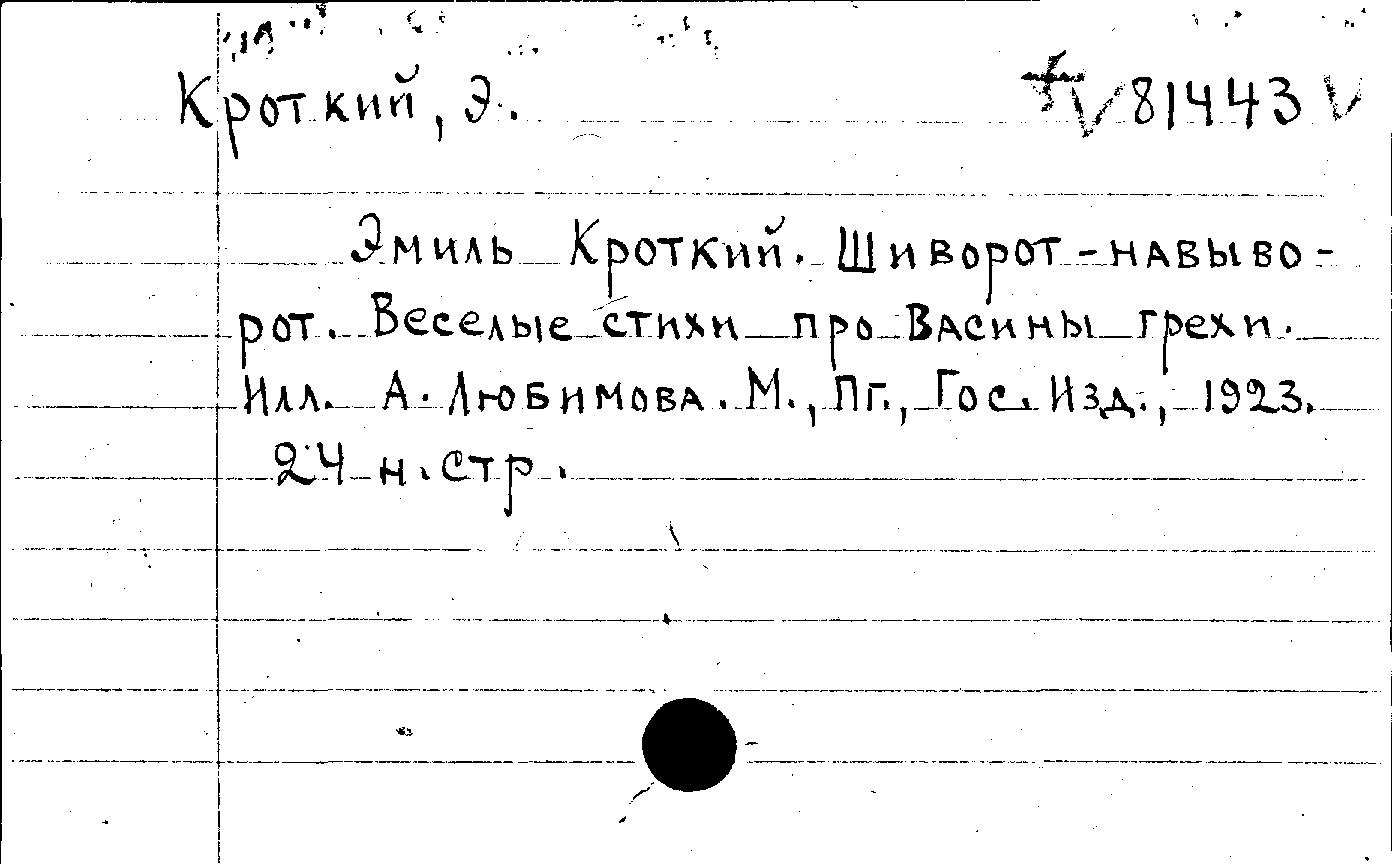 Кроткий, Э. 81443
Эмиль Кроткий. Шиворот-навыво-
рот. Веселые стихи про Васины грехи.
Илл. А. Любимова. М., Пг., Гос. Изд., 1923.
24 н. стр.